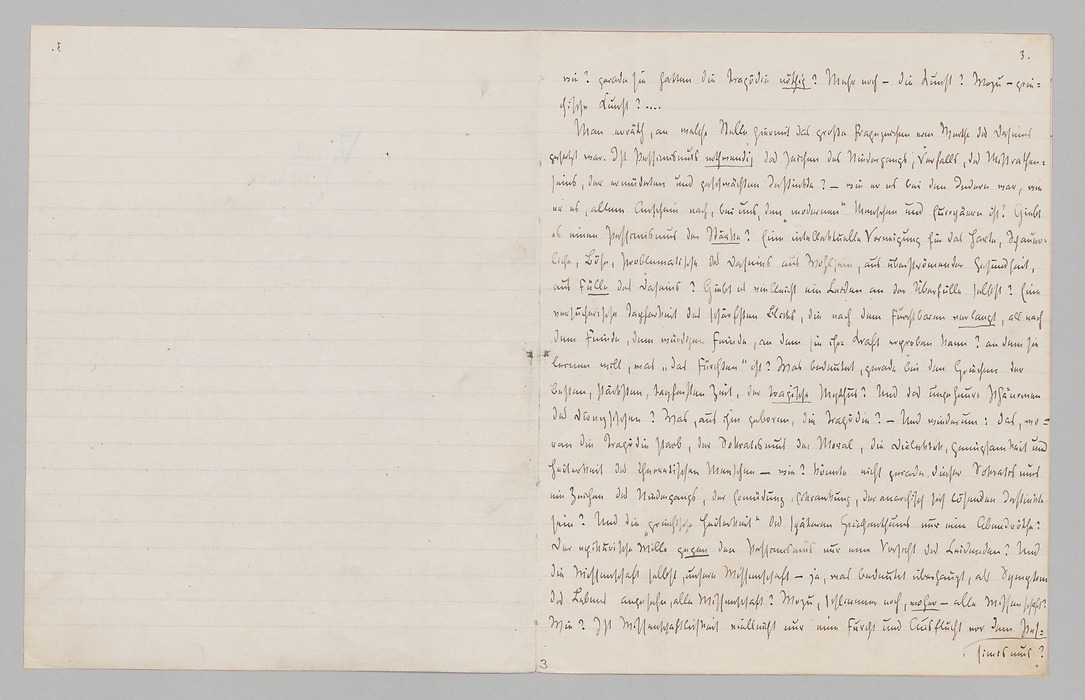 3.
wie? gerade sie hatten die Tragödie nöthig? Mehr noch – die Kunst? Wozu – grie=
chische Kunst? ....
Man erräth, an welche Stelle hiermit das große Fragezeichen vom Werthe des Daseins
gesetzt war. Ist Pessimismus nothwendig das Zeichen des Niedergangs, Verfalls, des Missrathen=
seins, der ermüdeten und geschwächten Instinkte? — wie er es bei den Indern war, wie
er es, allem Anschein nach, bei uns, den „modernen“ Menschen und Europäern ist? Giebt
es einen Pessimismus der Stärke? Eine intellektuelle Vorneigung für das Harte, Schauer=
liche, Böse, Problematische des Daseins aus Wohlsein, aus überströmender Gesundheit,
aus Fülle des Daseins? Giebt es vielleicht ein Leiden an der Überfülle selbst? Eine
versucherische Tapferkeit des schärfsten Blicks, die nach dem Furchtbaren verlangt, als nach
dem Feinde, dem würdigen Feinde, an dem sie ihre Kraft erproben kann? an dem sie
lernen will, was „das Fürchten“ ist? Was bedeutet, gerade bei den Griechen der
besten, stärksten, tapfersten Zeit, der tragische Mythus? Und das ungeheure Phänomen
des Dionysischen? Was, aus ihm geboren, die Tragödie? — Und wiederum: das, wo=
ran die Tragödie starb, der Sokratismus der Moral, die Dialektik, Genügsamkeit und
Heiterkeit des theoretischen Menschen — wie? könnte nicht gerade dieser Sokratismus
ein Zeichen des Niedergangs, der Ermüdung, Erkrankung, der anarchisch sich lösenden Instinkte
sein? Und die „griechische Heiterkeit“ des späteren Griechenthums nur eine Abendröthe?
Der epikurische Wille gegen den Pessimismus nur eine Vorsicht des Leidenden? Und
die Wissenschaft selbst, unsere Wissenschaft — ja, was bedeutet überhaupt, als Symptom
des Lebens angesehn, alle Wissenschaft? Wozu, schlimmer noch, woher — alle Wissenschaft?
Wie? Ist Wissenschaftlichkeit vielleicht nur eine Furcht und Ausflucht vor dem Pes=
simismus?
3